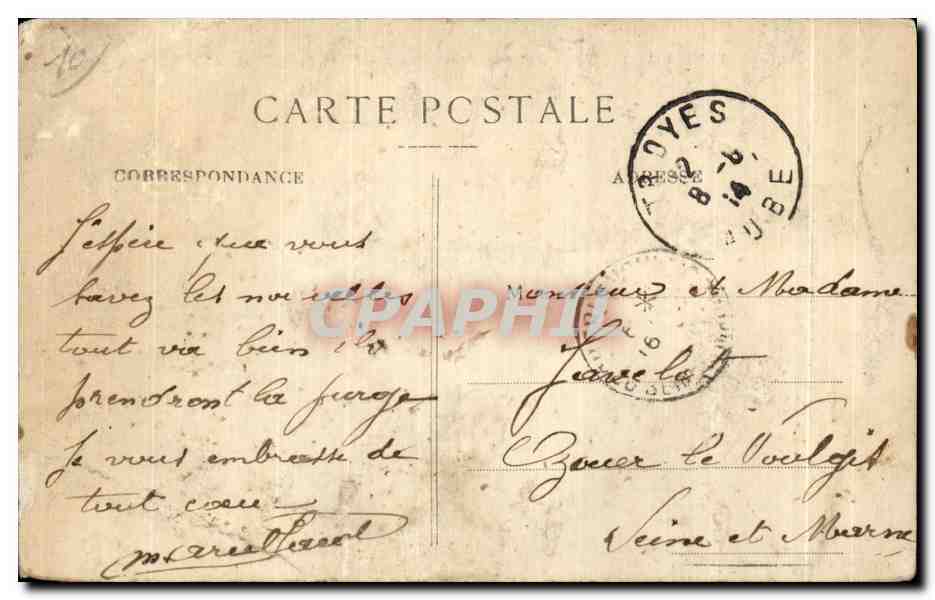 10
CARTE POSTALE
CORRESPONDANCE
ADRESSE
TROYES
AUBE
J'espère que vous
savez les nouvelles
tout va bien ils
prendront la purge
Je vous embrasse de
tout cœur
Monsieur et Madame
Javelot
Ozouer le Voulgis
Seine et Marne
CPAPHIL